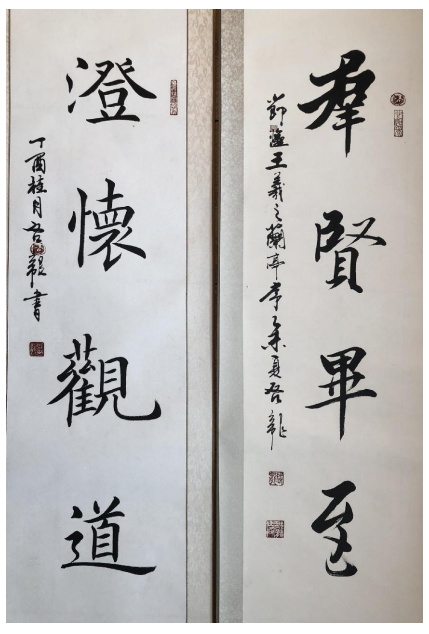 羣賢畢至
節臨王羲之蘭亭序乙未夏吾龍
澄懷觀道
丁酉桂月吾龍書